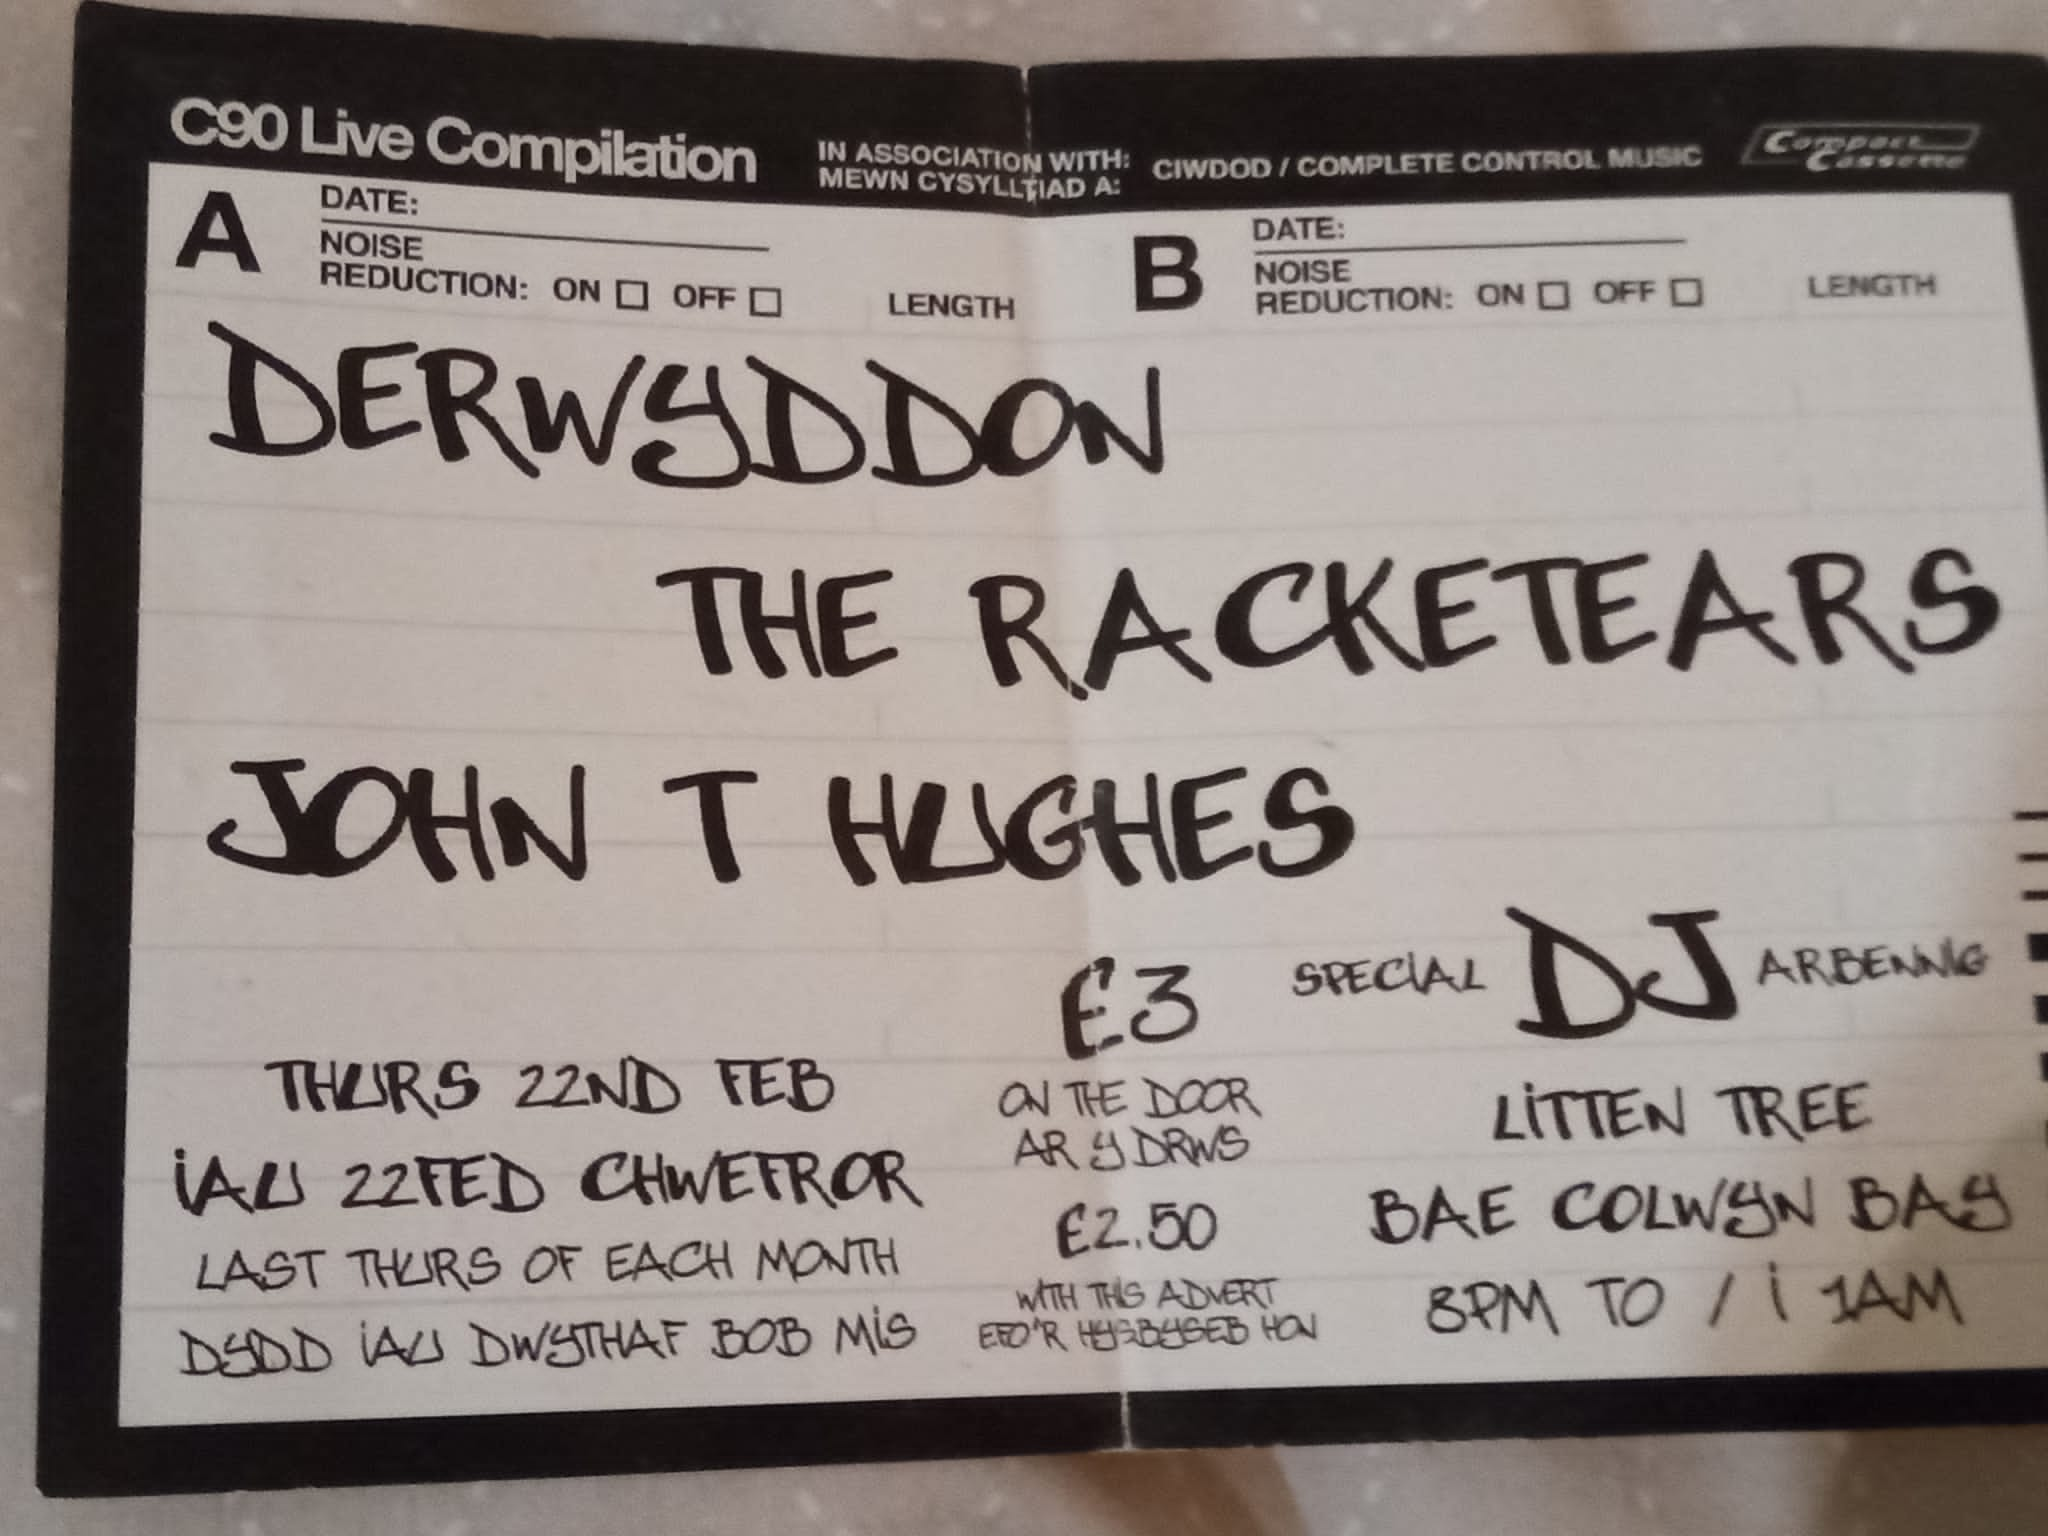 C90 Live Compilation
IN ASSOCIATION WITH:
MEWN CYSYLLTIAD A:
CIWDOD / COMPLETE CONTROL MUSIC
Compact
Cassette
A
DATE:
NOISE
REDUCTION: ON OFF
LENGTH
B
DATE:
NOISE
REDUCTION: ON OFF
LENGTH
DERWYDDON
THE RACKETEARS
JOHN T HUGHES
SPECIAL DJ ARBENNIG
THURS 22ND FEB
IAU 22FED CHWEFROR
LAST THURS OF EACH MONTH
DYDD IAU DWYTHAF BOB MIS
£3
ON THE DOOR
AR Y DRWS
£2.50
WITH THIS ADVERT
EFO'R HYSBYSEB HON
LITTEN TREE
BAE COLWYN BAY
8PM TO / I 1AM